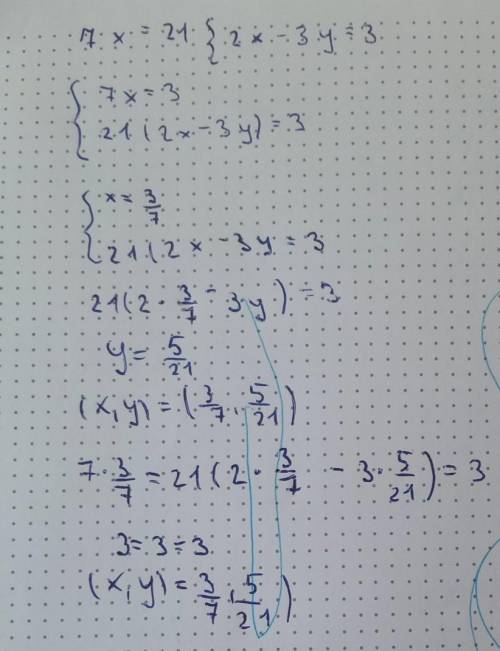 7x = 21 { 2x - 3y = 3
{ 7x = 3
21(2x - 3y) = 3
{ x = 3/7
21(2x - 3y = 3
21(2 · 3/7 - 3y) = 3
y = 5/21
(x, y) = (3/7, 5/21)
7 · 3/7 = 21(2 · 3/7 - 3 · 5/21) = 3
3 = 3 = 3
(x, y) = 3/7, 5/21)